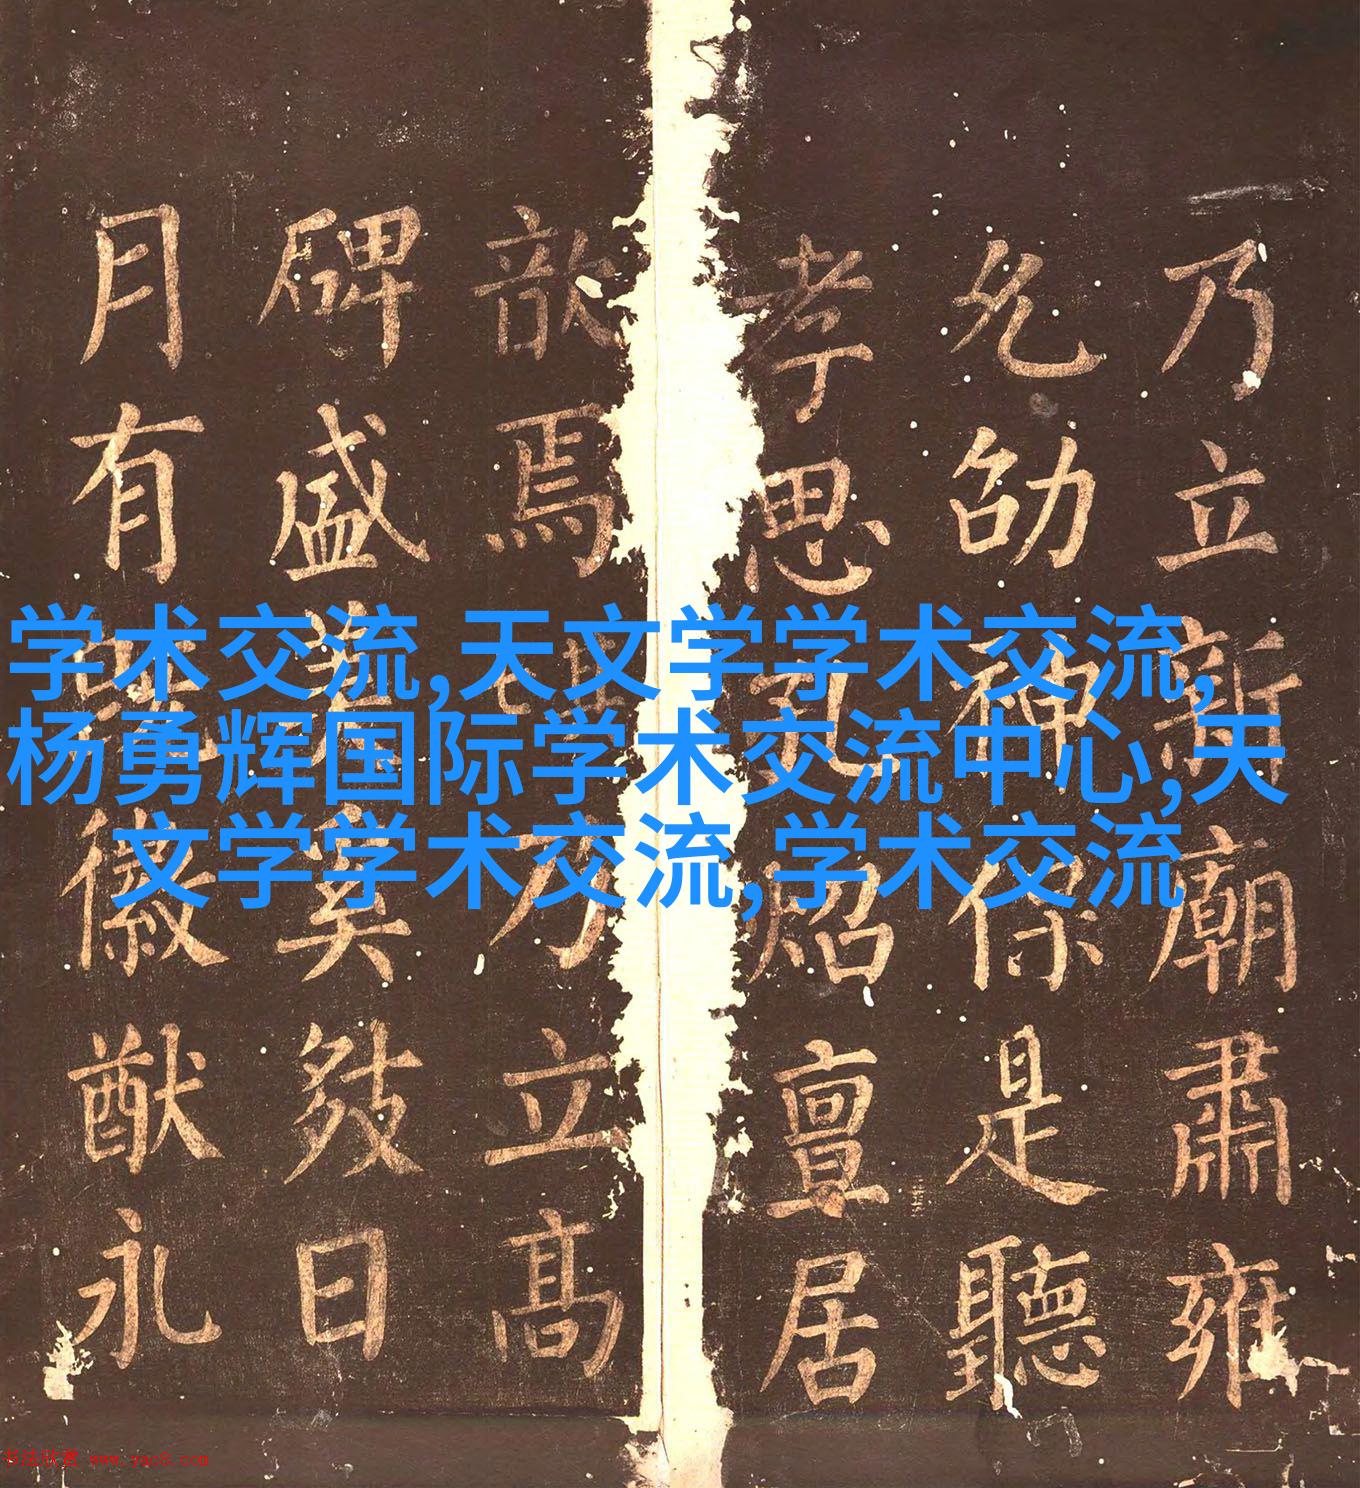 乃立新廟肅雍
允劭神保是聽
孝思孔炤亶居
歆焉乃立高
碑盛矣日
月有徽猷永
学术交流,天文学学术交流,
杨勇辉国际学术交流中心,天
文学学术交流,学术交流
书法欣赏 www.yac8.com